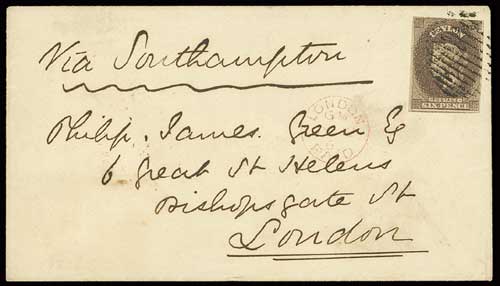 CEYLON
POSTAGE
SIX PENCE
Via Southampton
LONDON
PAID
Philip. James. Green Esq
6 Great St Helens
Bishopsgate St
London